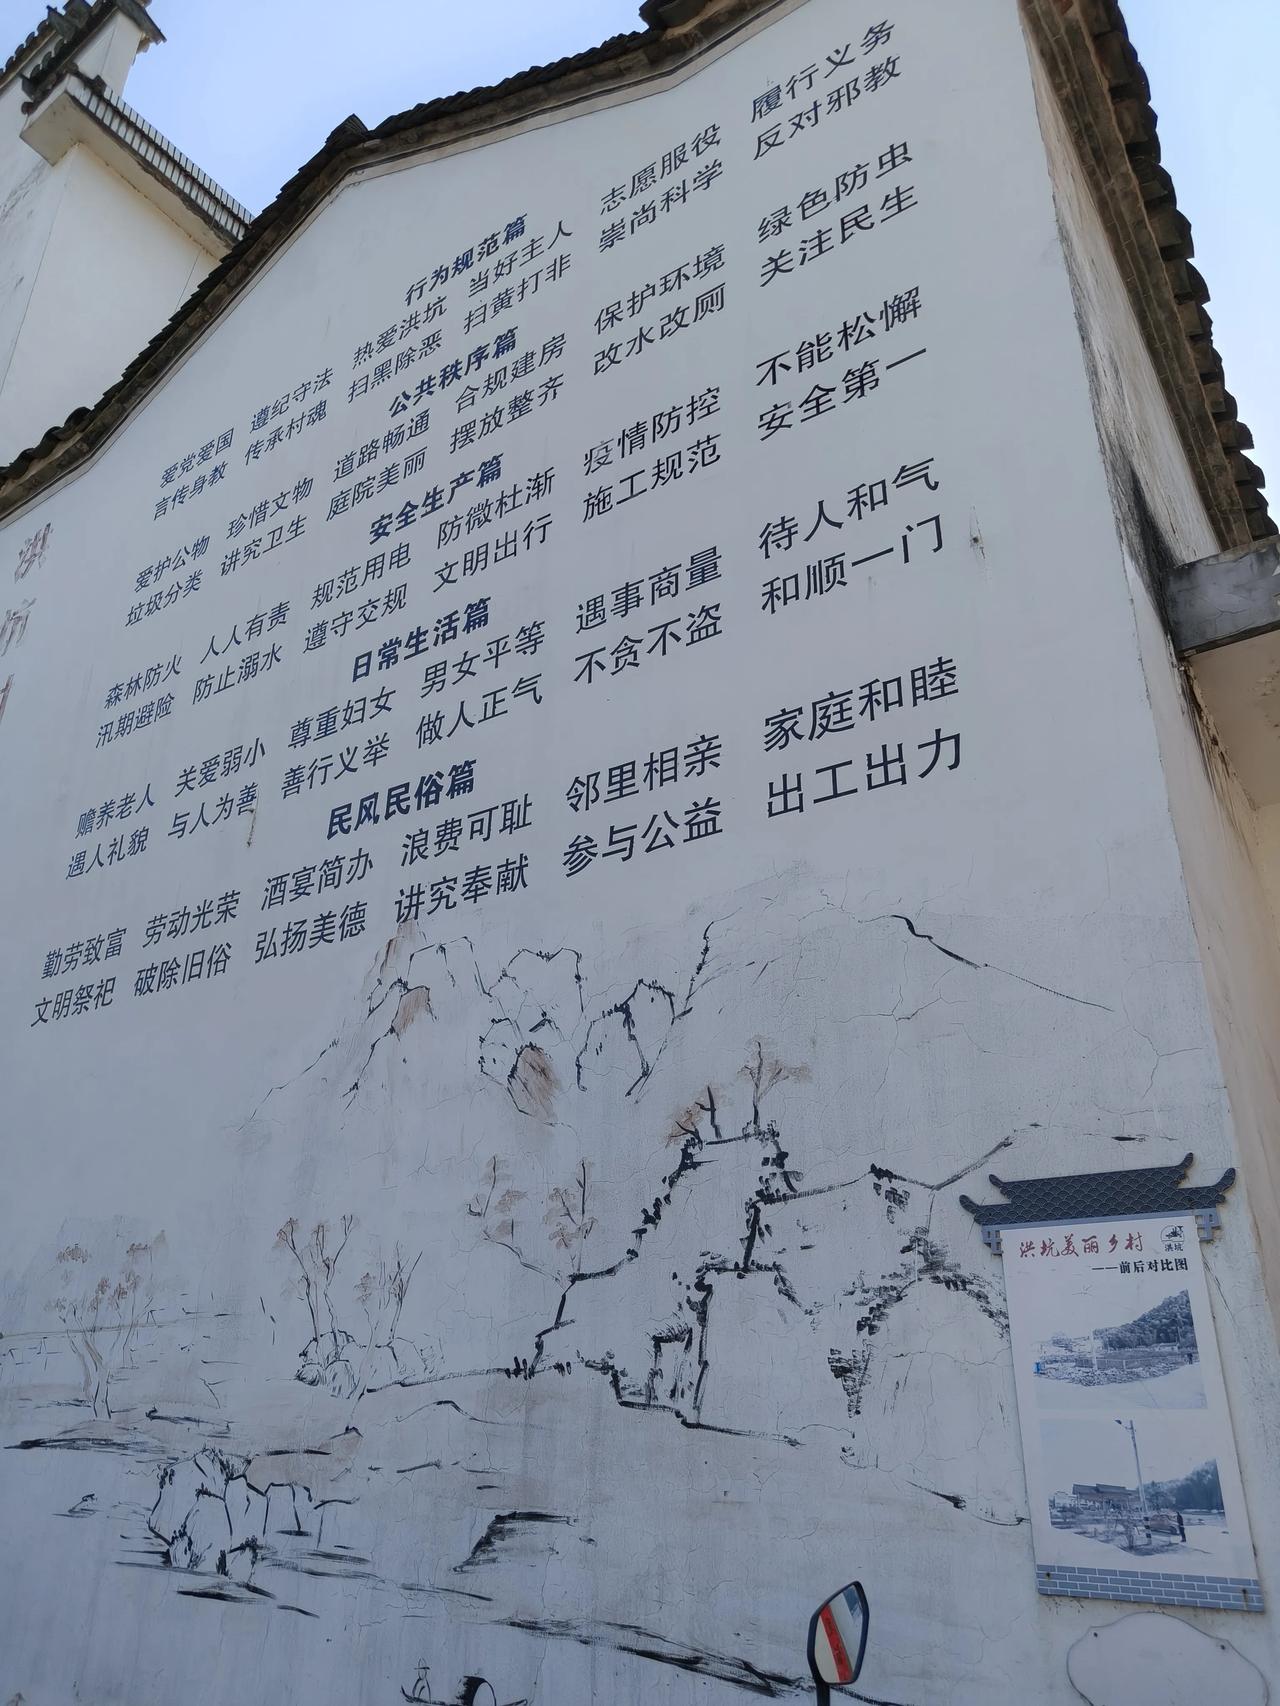 行为规范篇
爱党爱国 遵纪守法 热爱洪坑 当好主人 志愿服役 履行义务
言传身教 传承村魂 扫黑除恶 扫黄打非 崇尚科学 反对邪教
公共秩序篇
爱护公物 珍惜文物 道路畅通 合规建房 保护环境 绿色防虫
垃圾分类 讲究卫生 庭院美丽 摆放整齐 改水改厕 关注民生
安全生产篇
森林防火 人人有责 规范用电 防微杜渐 疫情防控 不能松懈
汛期避险 防止溺水 遵守交规 文明出行 施工规范 安全第一
日常生活篇
赡养老人 关爱弱小 尊重妇女 男女平等 遇事商量 待人和气
遇人礼貌 与人为善 善行义举 做人正气 不贪不盗 和顺一门
民风民俗篇
勤劳致富 劳动光荣 酒宴简办 浪费可耻 邻里相亲 家庭和睦
文明祭祀 破除旧俗 弘扬美德 讲究奉献 参与公益 出工出力
洪坑美丽乡村
洪坑
——前后对比图